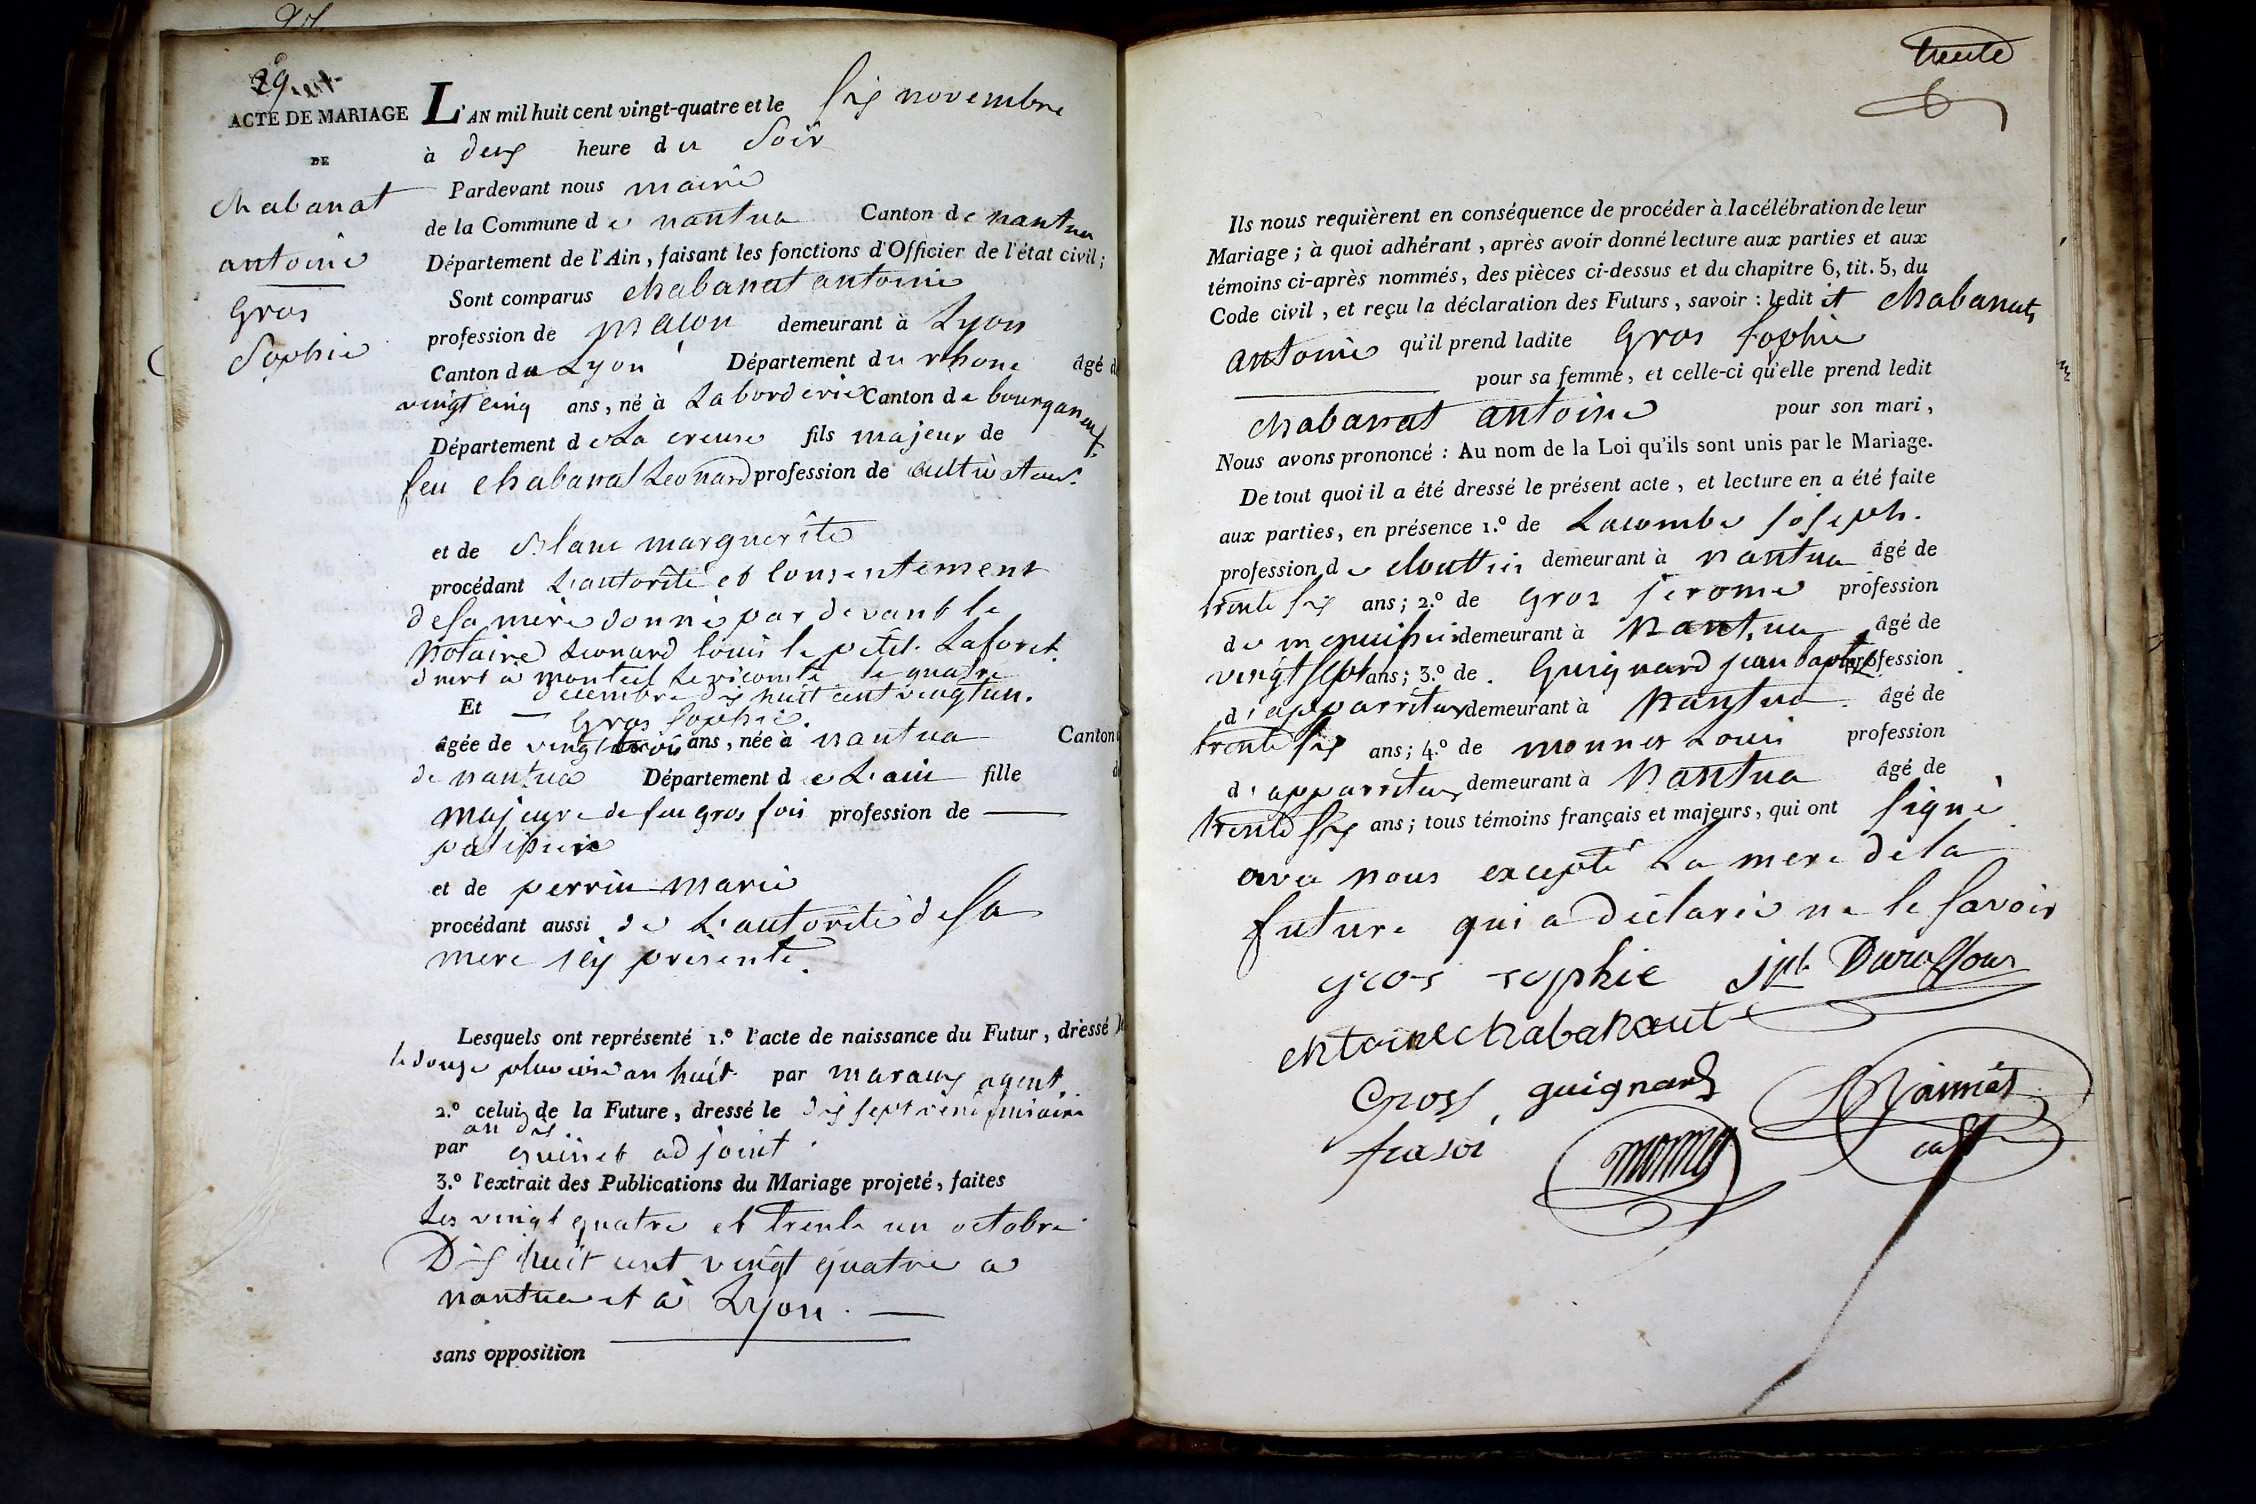 29
ACTE DE MARIAGE
DE
chabanat
antoine
Gros
Sophie
L'AN mil huit cent vingt-quatre et le six novembre
à deux heure du Soir
Pardevant nous maire
de la Commune de nantua Canton de nantua
Département de l'Ain, faisant les fonctions d'Officier de l'état civil;
Sont comparus chabanat antoine
profession de maçon demeurant à Lyon
Canton de Lyon Département du rhone âgé de
vingt cinq ans, né à Laborderie Canton de bourganeuf
Département de La creuse fils majeur de
feu chabanat Leonard profession de cultivateur
et de marguerite
procédant L'autorité et consentement
de sa mere donné par devant le
Notaire Leonard louis le petit Laforet
à monteil le vicomte le quatre
decembre dix huit cent vingt un.
Et Gros Sophie.
âgée de vingt trois ans, née à nantua Canton
de nantua Département de L'ain fille
majeure de feu gros fois profession de
patissier
et de perrin marie
procédant aussi de L'autorité de sa
mere icy presente.
Lesquels ont représenté 1.º l'acte de naissance du Futur, dressé
le douze pluviose an huit par agent
2.º celui de la Future, dressé le dix sept vendemiaire
an dix
par guinet adjoint
3.º l'extrait des Publications du Mariage projeté, faites
Les vingt quatre et trente un octobre
Dix huit cent vingt quatre a
nantua et à Lyon.
sans opposition
trente
Ils nous requièrent en conséquence de procéder à la célébration de leur
Mariage; à quoi adhérant, après avoir donné lecture aux parties et aux
témoins ci-après nommés, des pièces ci-dessus et du chapitre 6, tit. 5, du
Code civil, et reçu la déclaration des Futurs, savoir: ledit chabanat
antoine qu'il prend ladite Gros Sophie
pour sa femme, et celle-ci qu'elle prend ledit
chabanat antoine pour son mari,
Nous avons prononcé: Au nom de la Loi qu'ils sont unis par le Mariage.
De tout quoi il a été dressé le présent acte, et lecture en a été faite
aux parties, en présence 1.º de Lacombe joseph.
profession de clouttier demeurant à nantua âgé de
trente six ans; 2.º de Gros jerome profession
de menuisier demeurant à Nantua âgé de
vingt sept ans; 3.º de Guignard jean baptiste profession
d'apparriteur demeurant à Nantua âgé de
trente six ans; 4.º de monnet Louis profession
d'apparriteur demeurant à Nantua âgé de
trente six ans; tous témoins français et majeurs, qui ont signé
avec nous excepté La mere de la
future qui a déclaré ne le savoir
gros sophie jph Duraffour
entoine chabanaut
Gross guignard
monnet